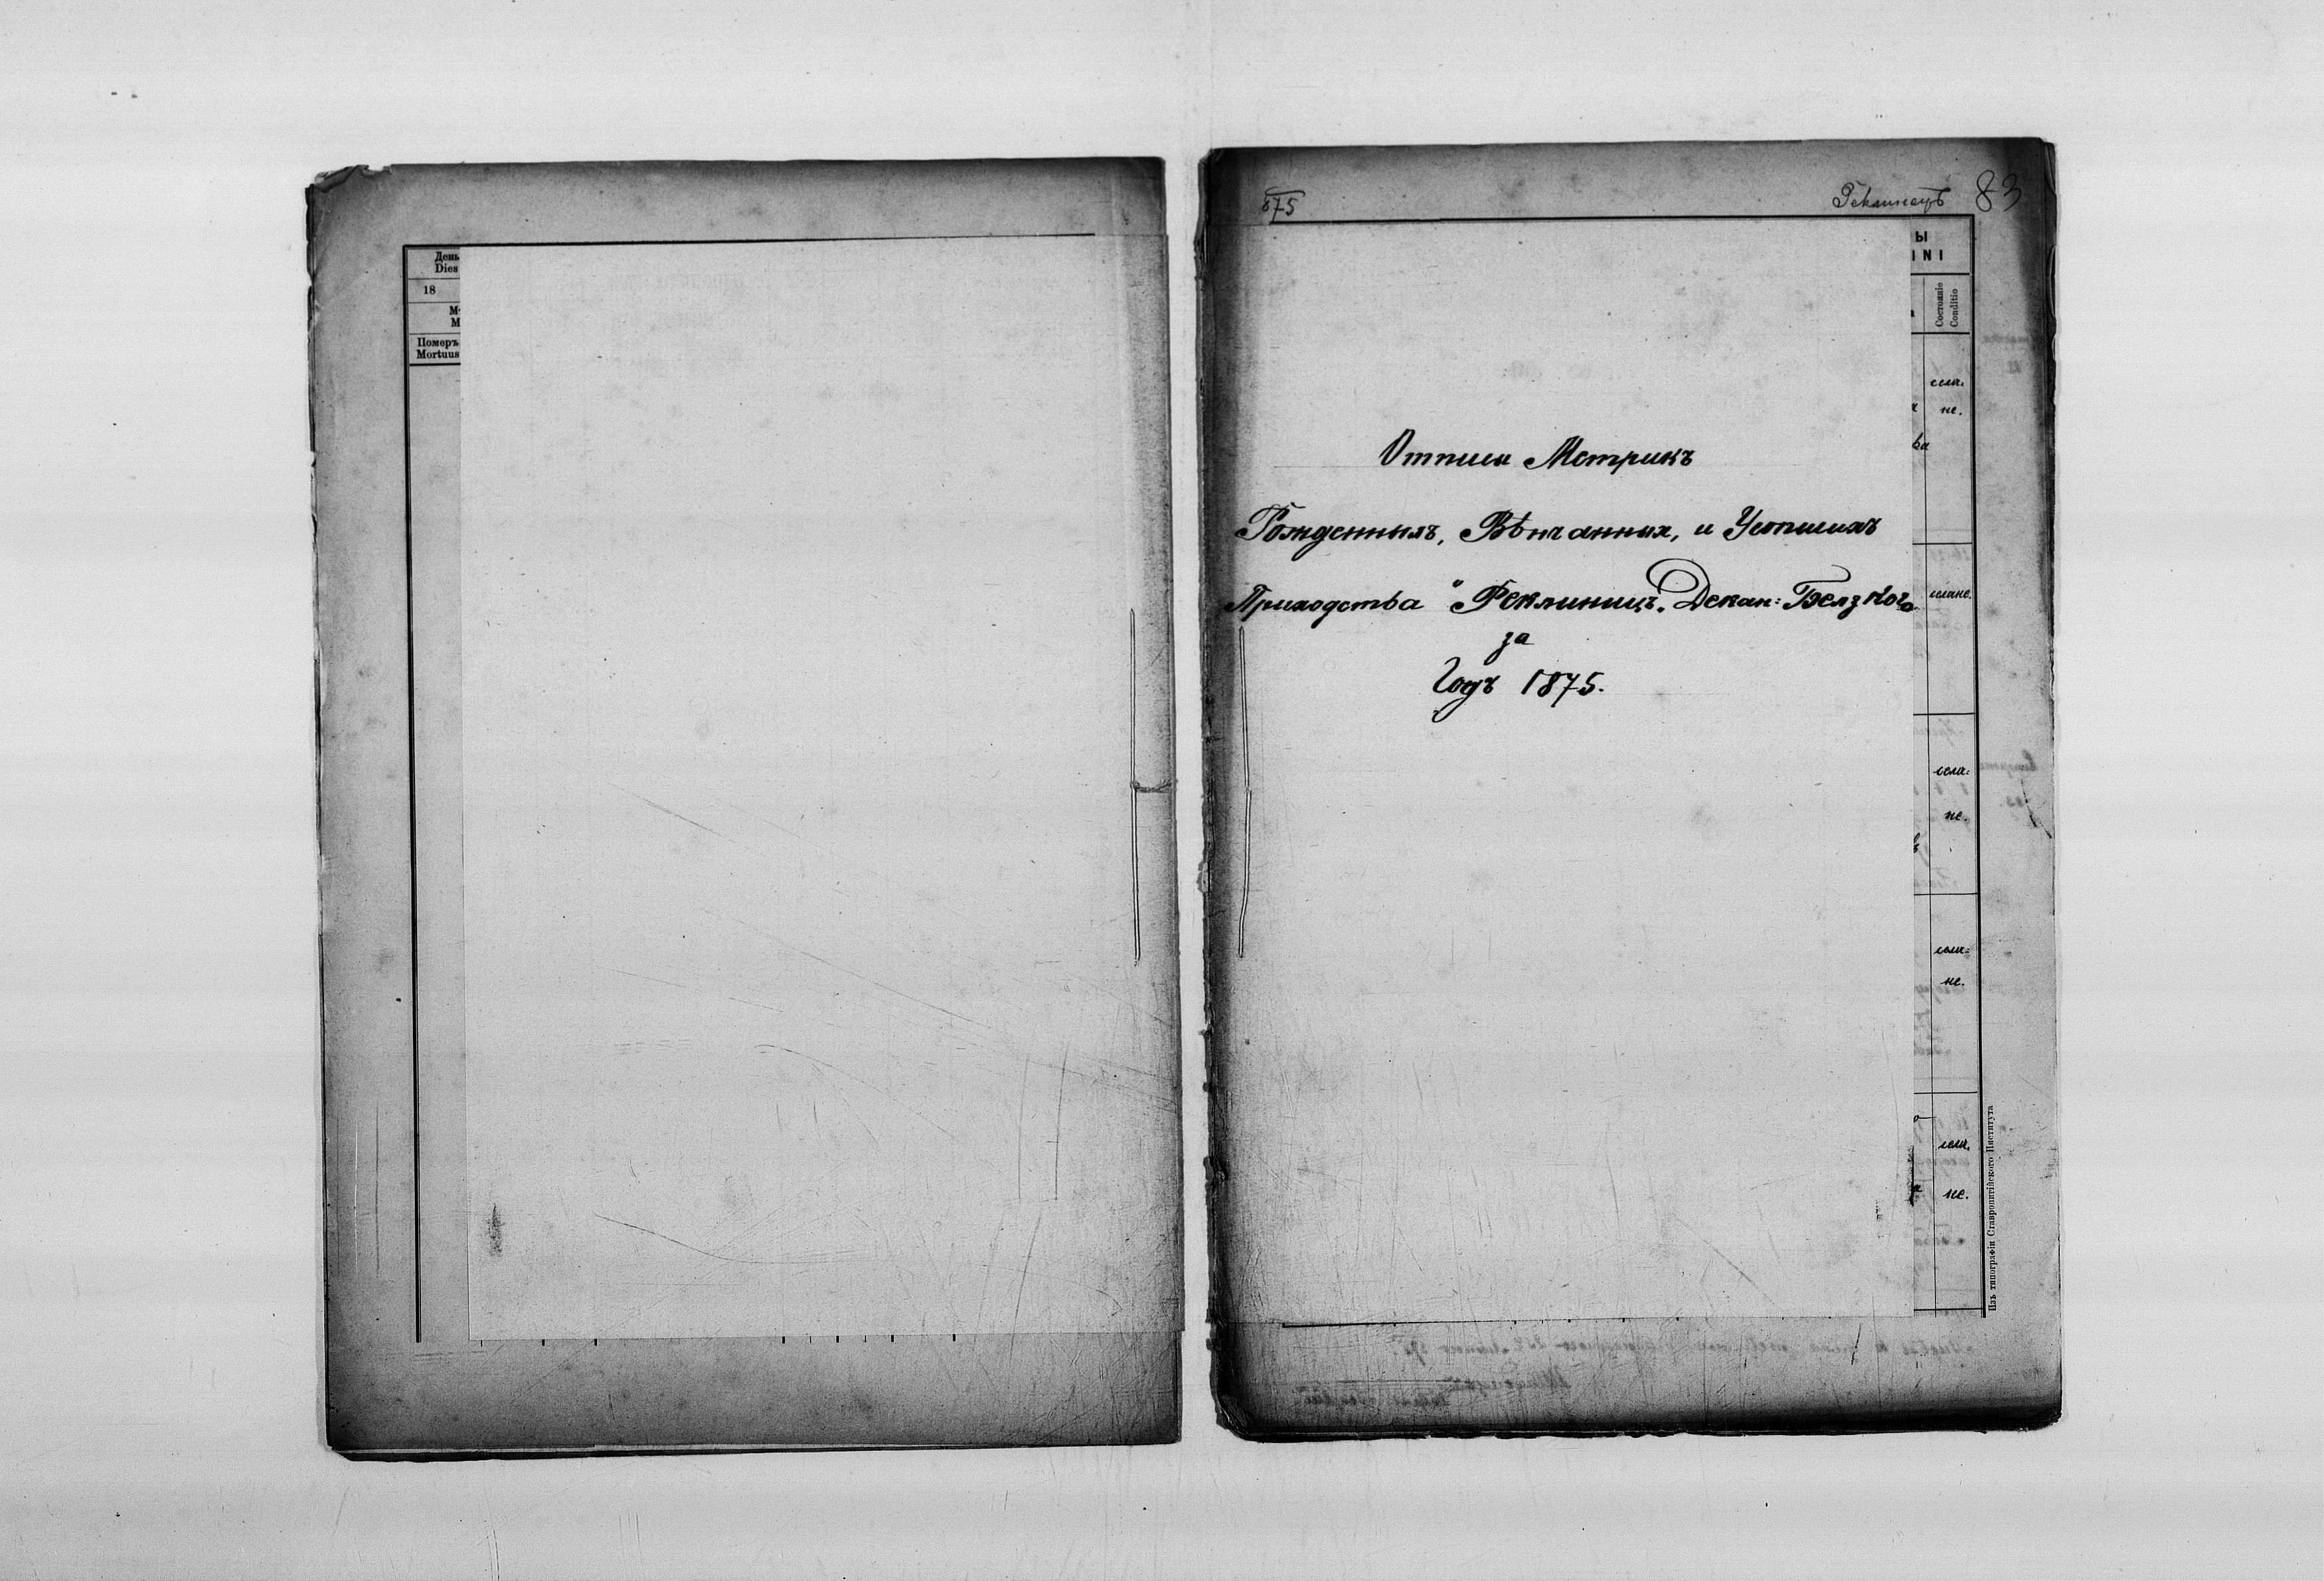 День
Dies
18
М
М
Померъ
Mortuus
875
83
Ы
INI
Состояніе
Conditio
села.
не.
ва
Отписи Метрикъ
Рожденныхъ, Вѣнчанных, и Усопшихъ
Приходства "Реклинецъ". Декан: Белзкого
за
Годъ 1875.
селяне.
селя:
не.
селя:
не.
селя.
не.
Изъ типографіи Ставропигійского Института